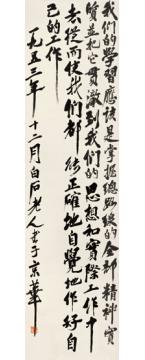 我们的学習應该是掌握總路線的全部精神实
質並把它貫澈到我们的思想和實際工作中
去從而使我们都能正確地自覺地作好自
己的工作
一九五三年十二月白石老人書于京華